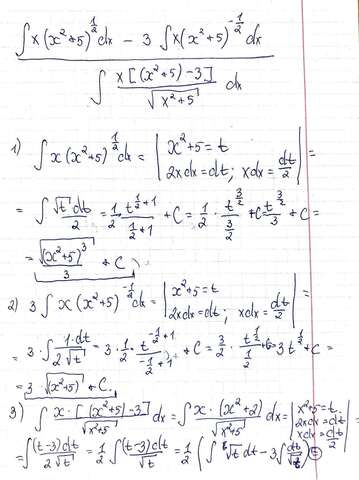 ∫x(x²+5)^{1/2}dx − 3 ∫x(x²+5)^{-1/2}dx
∫ x[(x²+5)−3]/√(x²+5) dx
1) ∫x(x²+5)^{1/2}dx = | x²+5=t
2xdx=dt; xdx=dt/2 | =
= ∫ √t dt/2 = 1/2 · t^{1/2+1}/(1/2+1) + C = 1/2 · t^{3/2}/(3/2) + C t^{3/2}/3 + C =
= √(x²+5)³/3 + C
2) 3∫x(x²+5)^{-1/2}dx = | x²+5=t
2xdx=dt; xdx=dt/2 | =
= 3·∫ 1·dt/(2√t) = 3·1/2 · t^{-1/2+1}/(-1/2+1) + C = 3/2 · t^{1/2}/(1/2) = 3t^{1/2} + C =
= 3·√(x²+5) + C.
3) ∫ x·[(x²+5)−3]/√(x²+5) dx = ∫ x·(x²+2)/√(x²+5) dx = | x²+5=t. 2xdx=dt xdx=dt/2 | =
= ∫ (t−3)dt/(2√t) = 1/2 ∫ (t−3)dt/√t = 1/2 (∫ √t dt − 3∫ dt/√t) =